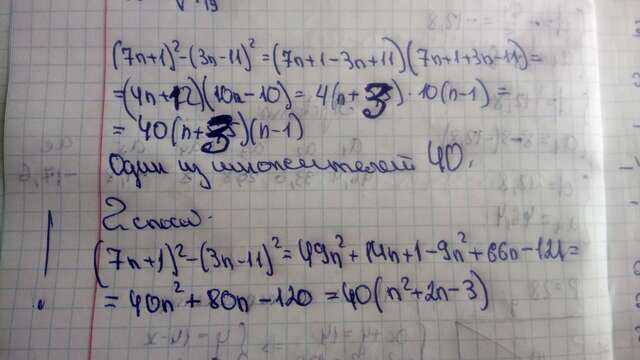 (7n+1)²-(3n-11)² = (7n+1-3n+11)(7n+1+3n-11)=
=(4n+12)(10n-10)= 4(n+3)·10(n-1)=
= 40(n+3)(n-1)
Один из множителей 40.
2 способ.
(7n+1)²-(3n-11)²=49n²+14n+1-9n²+66n-121=
= 40n²+80n-120 = 40(n²+2n-3)